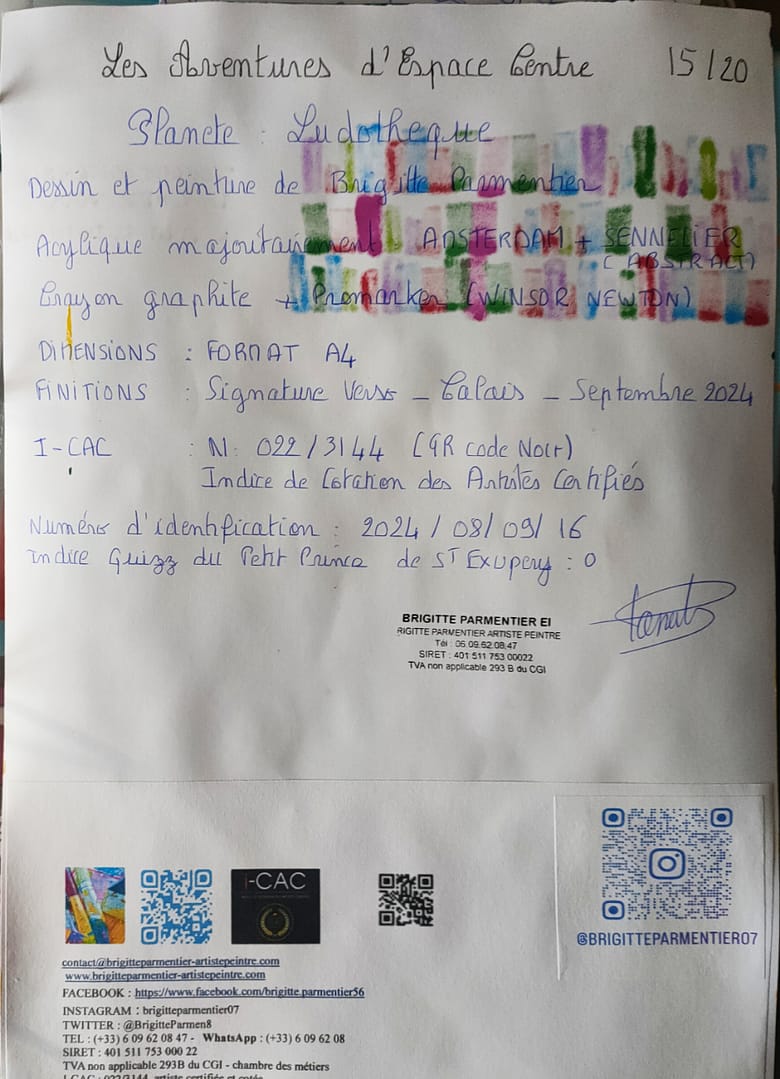 Les Aventures d'Espace Centre 15/20
Planete : Ludotheque
Dessin et peinture de Brigitte Parmentier
Acylique majoutairement : AMSTERDAM + SENNELIER
(ABSTRACT)
Crayon graphite + Promarker (WINSOR NEWTON)
DIMENSIONS : FORMAT A4
FINITIONS : Signature Verso - Calais - Septembre 2024
I-CAC : N: 022/3144 (QR code Noir)
Indice de Cotation des Artistes Certifiés
Numéro d'identification : 2024/08/09/16
Indice Quizz du Petit Prince de ST Exupery : 0
BRIGITTE PARMENTIER EI
RIGITTE PARMENTIER ARTISTE PEINTRE
Tél : 06 09 62 08 47
SIRET : 401 511 753 00022
TVA non applicable 293 B du CGI
i-CAC
@BRIGITTEPARMENTIER07
contact@brigitteparmentier-artistepeintre.com
www.brigitteparmentier-artistepeintre.com
FACEBOOK : https://www.facebook.com/brigitte.parmentier56
INSTAGRAM : brigitteparmentier07
TWITTER : @BrigitteParmen8
TEL : (+33) 6 09 62 08 47 - WhatsApp : (+33) 6 09 62 08
SIRET : 401 511 753 000 22
TVA non applicable 293B du CGI - chambre des métiers
I-CAC : 022/3144 artiste certifiée et cotée